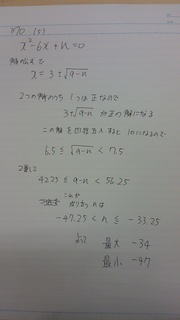 x²-6x+n=0
x = 3±√9-n
2つの解のうち 1つは正なので
3+√9-n が正の解になる
この解を四捨五入すると10になるので
6.5 ≦ √9-n < 7.5
2乗して
42.25 ≦ 9-n < 56.25
これが
成り立つ n は
-47.25 < n ≦ -33.25
よって 最大 -34
最小 -47